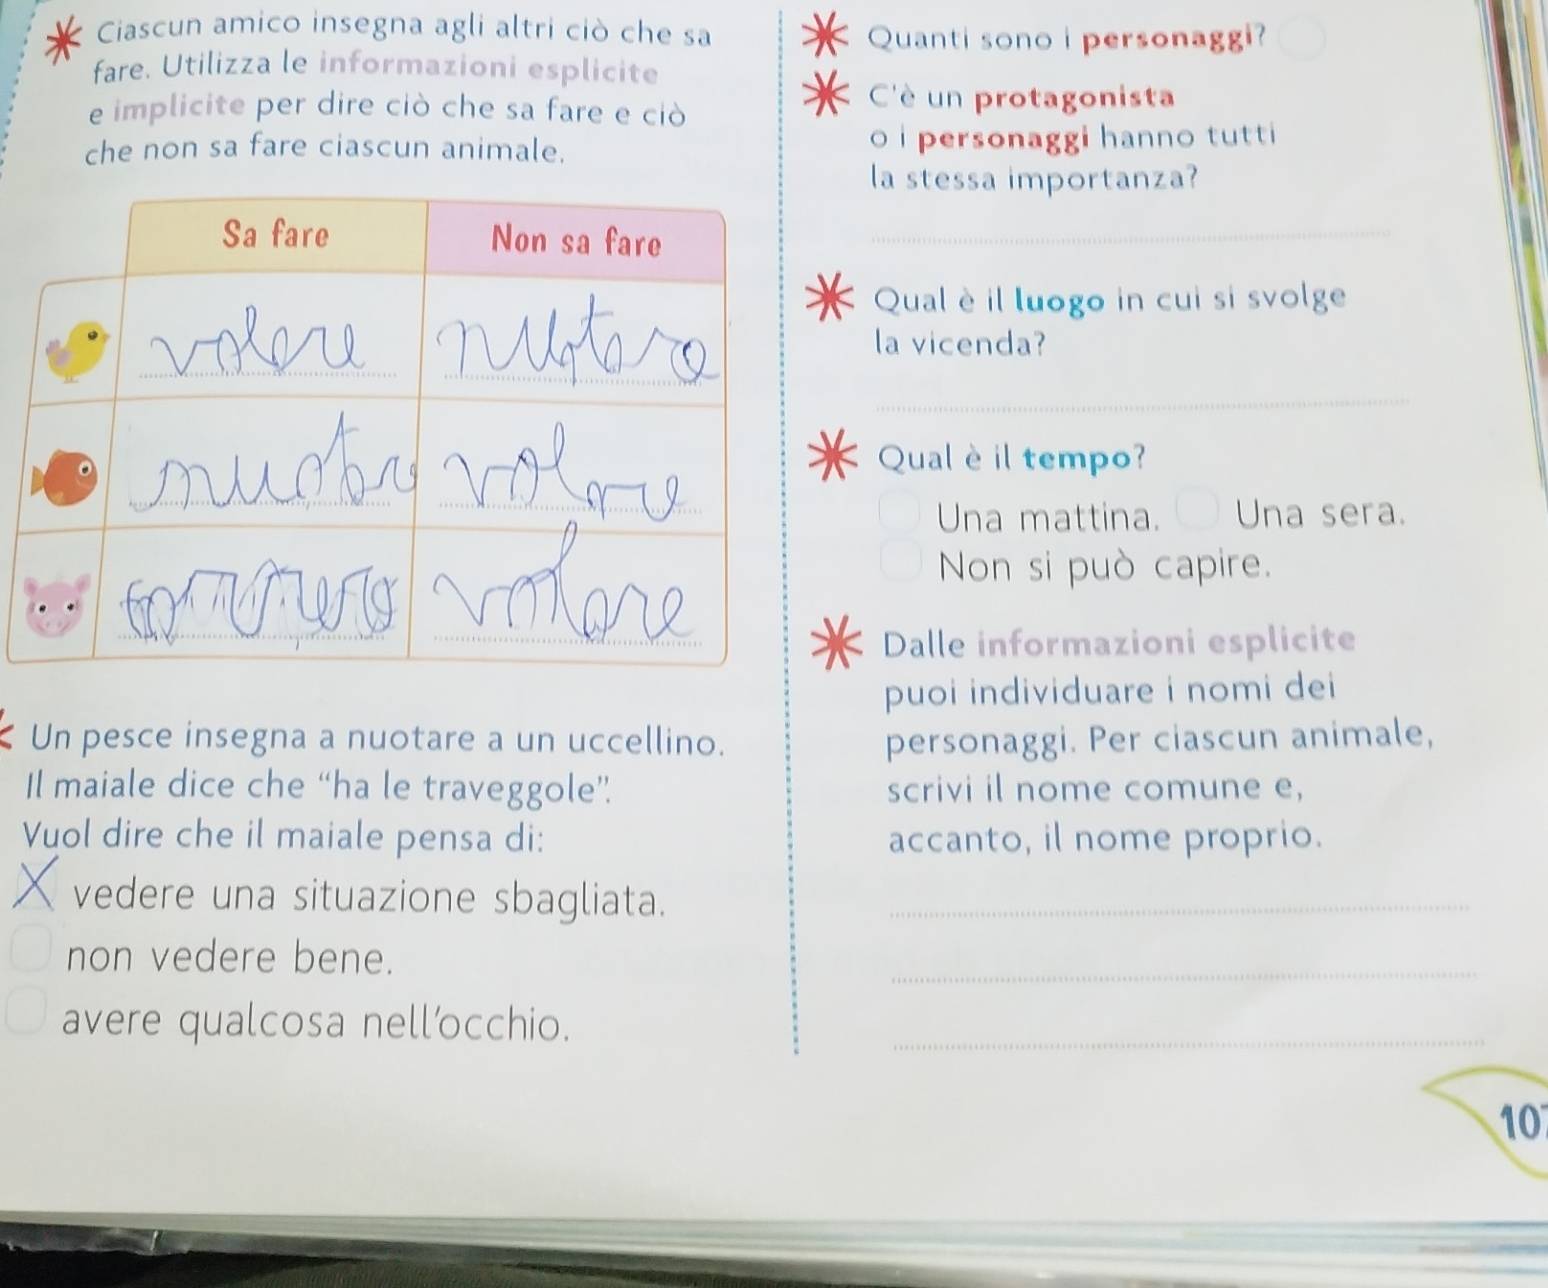 Ciascun amico insegna agli altri ciò che sa
fare. Utilizza le informazioni esplicite
e implicite per dire ciò che sa fare e ciò
che non sa fare ciascun animale.
Sa fare Non sa fare
volere
volare
Un pesce insegna a nuotare a un uccellino.
Il maiale dice che “ha le traveggole”.
Vuol dire che il maiale pensa di:
X vedere una situazione sbagliata.
non vedere bene.
avere qualcosa nell'occhio.
Quanti sono i personaggi?
C'è un protagonista
o i personaggi hanno tutti
la stessa importanza?
Qual è il luogo in cui si svolge
la vicenda?
Qual è il tempo?
Una mattina. Una sera.
Non si può capire.
Dalle informazioni esplicite
puoi individuare i nomi dei
personaggi. Per ciascun animale,
scrivi il nome comune e,
accanto, il nome proprio.